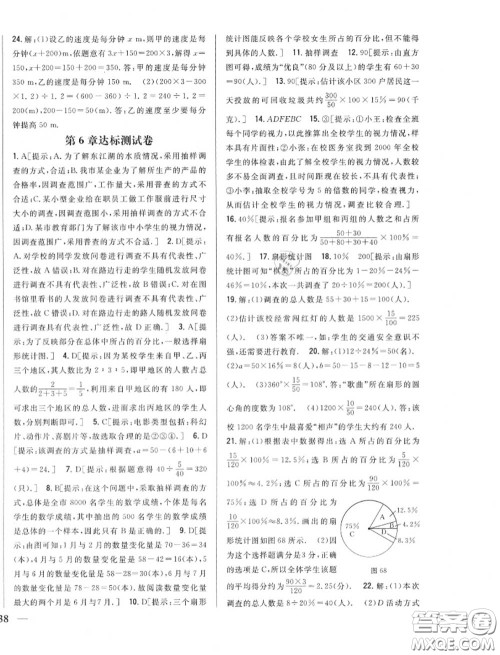 24. 解:(1)设乙的速度是每分钟x m,则甲的速度是每
分钟(x+200) m,依题意有3x+150=200×3,解得
x=150,x+200=150+200=350.答:甲的速度是每分
钟350 m,乙的速度是每分钟150 m. (2)(200×3-300
×1.2)÷1.2=(600-360)÷1.2=240÷1.2=200
(m),200-150=50(m).答:乙的速度至少要每分钟
提高50 m.
第6章达标测试卷
1. A[提示:A.为了解东江湖的水质情况,采用抽样调
查的方式,合适;B.我市某企业为了解所生产的产品的
合格率,因调查范围广,工作量大,采用抽样调查的方
式合适;C.某小型企业给在职员工做工作服前进行尺寸
大小的调查,因调查范围小,采用普查的方式合适;
D.某市教育部门为了解该市中小学生的视力情况,
因调查范围广,采用普查的方式不合适.] 2. D[提示:
A.对学校的同学发放问卷进行调查不具有代表性、广
泛性,故A错误;B.对在路边行走的学生随机发放问卷
进行调查不具有代表性、广泛性,故B错误;C.对在图
书馆里看书的人发放问卷进行调查不具有代表性、广
泛性,故C错误;D.对在路边行走的路人随机发放问卷
进行调查具有代表性、广泛性,故D正确.] 3. A[提
示:为了反映部分在总体中所占的百分比,一般选择扇
形统计图.] 4. D[提示:因为某校学生来自甲、乙、丙
三个地区,其人数比为2∶3∶5,即甲地区的人数占总
人数的2/(2+3+5)=1/5,利用来自甲地区的有180人,即
可求出三个地区的总人数,进而求出丙地区的学生人
数,分别判断即可.] 5. D[提示:电影类型包括:科幻
片、动作片、喜剧片等,故选项D合适.] 6. B[提示:本
次调查的方式为抽样调查,a=50-(6+10+6
+4)=24.] 7. D[提示:根据题意得40÷5/40=320
(只).] 8. D[提示:这种调查采取了抽样调查的方
式,总体是全市8000名学生的数学成绩,个体是每名
学生的数学成绩,其中抽出的500名学生的数学成绩
是总体的一个样本,故只有D是正确的.] 9. D[提
示:由图可知:1月与2月的数量变化量是70-36=34
(本),4月与5月的数量变化量是58-42=16(本),5
月与6月的数量变化量是58-28=30(本),6月与7
月的数量变化量是68-28=40(本),故阅读数量变化量
最大的两个月是6月与7月.] 10. D[提示:由扇形
统计图能反映各个学校女生所占的百分比,但不能得
出具体的总人数.] 11. 抽样调查 12. 90[提示:由直方
图可得,成绩为“优良”(80分及以上)的学生有60+
30=90(人).] 13. 90[提示:估计该小区300户居民这一
天投放的可回收垃圾共约100/300×100%×15%=90
(千克).] 14. ADFEBC 15. ①小王:检查全班每个
同学的视力,以此推算出全校学生的视力情况,样本不
具有代表性;②小张:在校医务室找到2000年全校学
生的体检表,由此了解全校学生的视力情况,人数较多
不易于全面调查,且时间距现在较长,不具有代表性;
③小李:抽取全校学号为5的倍数的同学,检查视力,
从而估计全校学生视力情况,调查比较合理.]
16. 40%[提示:报名参加甲组和丙组的人数之和占所
有报名人数的百分比为(50+30)/(50+80+30+40)×100%=
40%.] 17. 扇形统计图 18. 10% 200[提示:由扇形
统计图可知“棋类”所占的百分比为1-20%-24%-
46%=10%,则这次调查的人数是20÷10%=200(人).]
19. 解:(1)调查的总人数是55+30+15=100(人).
(2)估计该校经常闯红灯的人数是1500×15/100=225
(人). (3)答案不唯一,如:学生的交通安全意识不
强,还需要进行教育. 20. 解:(1)15÷30%=50(人).
(2)最喜欢足球的人数是50-15-8-5-12-5=5
(人). (3)360°×15/50=108°,答:“歌曲”所在扇形的圆
心角的度数为108°. (4)1200×10/50=240(人).答:该校
1200名学生中最喜爱“相声”的学生大约有240人.
21. 解:(1)根据表中数据得出:选A所占的百分比为
15/120×100%=12.5%;选B所占的百分比为5/120×
100%≈4.2%;选C所占的百分比为90/120×100%=
75%;选D所占的百分比为
10/120×100%≈8.3%.画出的扇
形统计图如图68. (2)因为
这个选择题满分是3分,正确
的选项是C,所以全体学生该题
的平均得分约为(90×3)/120=2.25(分). 22. 解:(1)
调查的总人数是8÷20%=40(人). (2)D方式支付
75%
C
A
B
D
12.5%
4.2%
8.3%
图68
38
答案圈